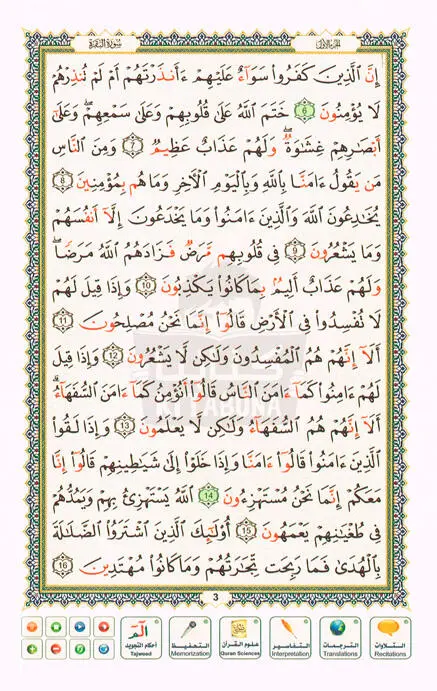 الجزء الأول
سورة البقرة
إِنَّ ٱلَّذِينَ كَفَرُوا۟ سَوَآءٌ عَلَيْهِمْ ءَأَنذَرْتَهُمْ أَمْ لَمْ تُنذِرْهُمْ
لَا يُؤْمِنُونَ ٦ خَتَمَ ٱللَّهُ عَلَىٰ قُلُوبِهِمْ وَعَلَىٰ سَمْعِهِمْ ۖ وَعَلَىٰٓ
أَبْصَـٰرِهِمْ غِشَـٰوَةٌ ۖ وَلَهُمْ عَذَابٌ عَظِيمٌ ٧ وَمِنَ ٱلنَّاسِ
مَن يَقُولُ ءَامَنَّا بِٱللَّهِ وَبِٱلْيَوْمِ ٱلْـَٔاخِرِ وَمَا هُم بِمُؤْمِنِينَ ٨
يُخَـٰدِعُونَ ٱللَّهَ وَٱلَّذِينَ ءَامَنُوا۟ وَمَا يَخْدَعُونَ إِلَّآ أَنفُسَهُمْ
وَمَا يَشْعُرُونَ ٩ فِى قُلُوبِهِم مَّرَضٌ فَزَادَهُمُ ٱللَّهُ مَرَضًا ۖ
وَلَهُمْ عَذَابٌ أَلِيمٌۢ بِمَا كَانُوا۟ يَكْذِبُونَ 10 وَإِذَا قِيلَ لَهُمْ
لَا تُفْسِدُوا۟ فِى ٱلْأَرْضِ قَالُوٓا۟ إِنَّمَا نَحْنُ مُصْلِحُونَ 11
أَلَآ إِنَّهُمْ هُمُ ٱلْمُفْسِدُونَ وَلَـٰكِن لَّا يَشْعُرُونَ 12 وَإِذَا قِيلَ
لَهُمْ ءَامِنُوا۟ كَمَآ ءَامَنَ ٱلنَّاسُ قَالُوٓا۟ أَنُؤْمِنُ كَمَآ ءَامَنَ ٱلسُّفَهَآءُ ۗ
أَلَآ إِنَّهُمْ هُمُ ٱلسُّفَهَآءُ وَلَـٰكِن لَّا يَعْلَمُونَ 13 وَإِذَا لَقُوا۟
ٱلَّذِينَ ءَامَنُوا۟ قَالُوٓا۟ ءَامَنَّا وَإِذَا خَلَوْا۟ إِلَىٰ شَيَـٰطِينِهِمْ قَالُوٓا۟ إِنَّا
مَعَكُمْ إِنَّمَا نَحْنُ مُسْتَهْزِءُونَ 14 ٱللَّهُ يَسْتَهْزِئُ بِهِمْ وَيَمُدُّهُمْ
فِى طُغْيَـٰنِهِمْ يَعْمَهُونَ 15 أُو۟لَـٰٓئِكَ ٱلَّذِينَ ٱشْتَرَوُا۟ ٱلضَّلَـٰلَةَ
بِٱلْهُدَىٰ فَمَا رَبِحَت تِّجَـٰرَتُهُمْ وَمَا كَانُوا۟ مُهْتَدِينَ 16
KITABUNA
3
التلاوات
Recitations
الترجمات
Translations
التفاسير
Interpretation
علوم القرآن
Quran Sciences
التحفيظ
Memorization
الٓمٓ
أحكام التجويد
Tajweed